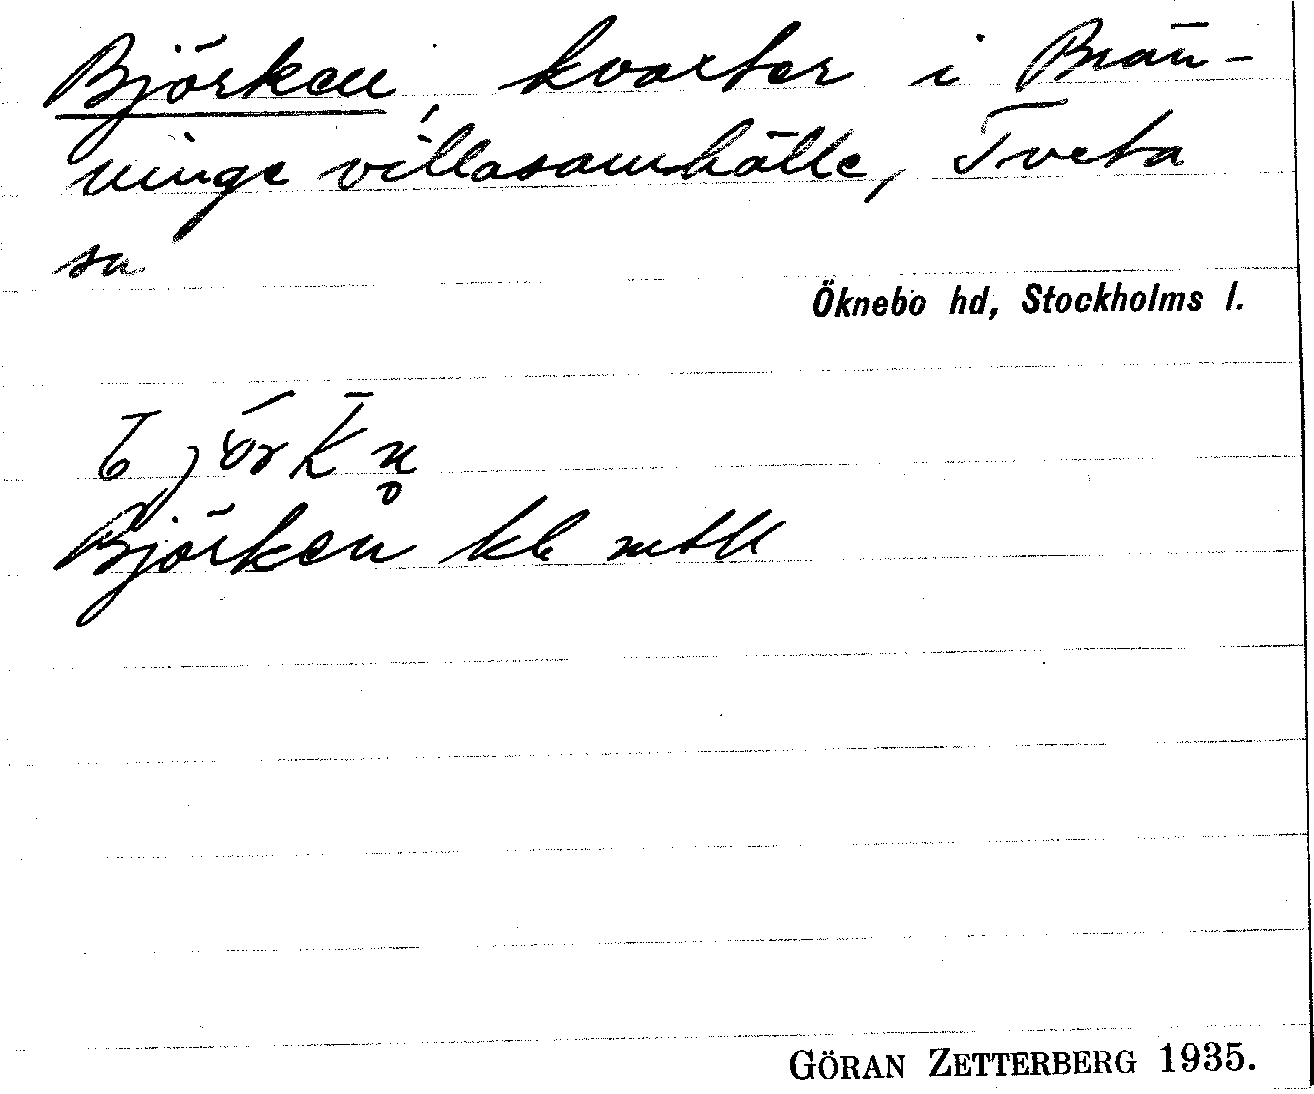 Björken, kvarter i Brän-
ninge villasamhälle, Tveta
sn
Öknebo hd, Stockholms l.
Björken kb mtll
GÖRAN ZETTERBERG 1935.